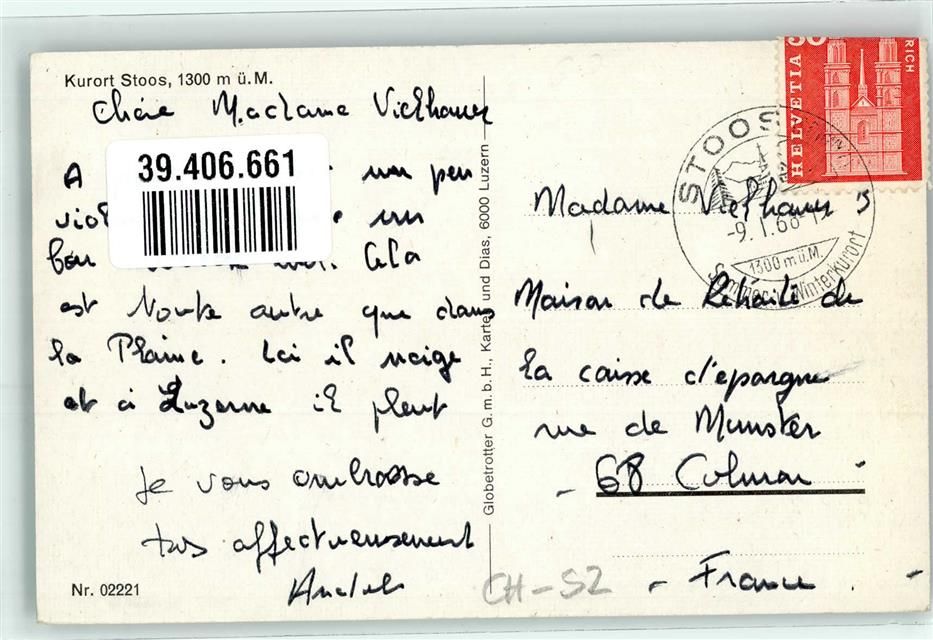 Kurort Stoos, 1300 m ü.M.
Chère Madame Vielhauer
39.406.661
A un peu
un
bon Cela
est toute autre que dans
la Plaine. Ici il neige
et à Luzerne il pleut
Je vous embrasse
très affectueusement
Nr. 02221
Globetrotter G.m.b.H., Karten und Dias, 6000 Luzern
HELVETIA
STOOS
-9.1.68
1300 m ü.M.
Sommer- Winterkurort
Madame Vielhauer
Maison de Retraite de
la caisse d'epargne
rue de Munster
68 Colmar
France
CH-SZ